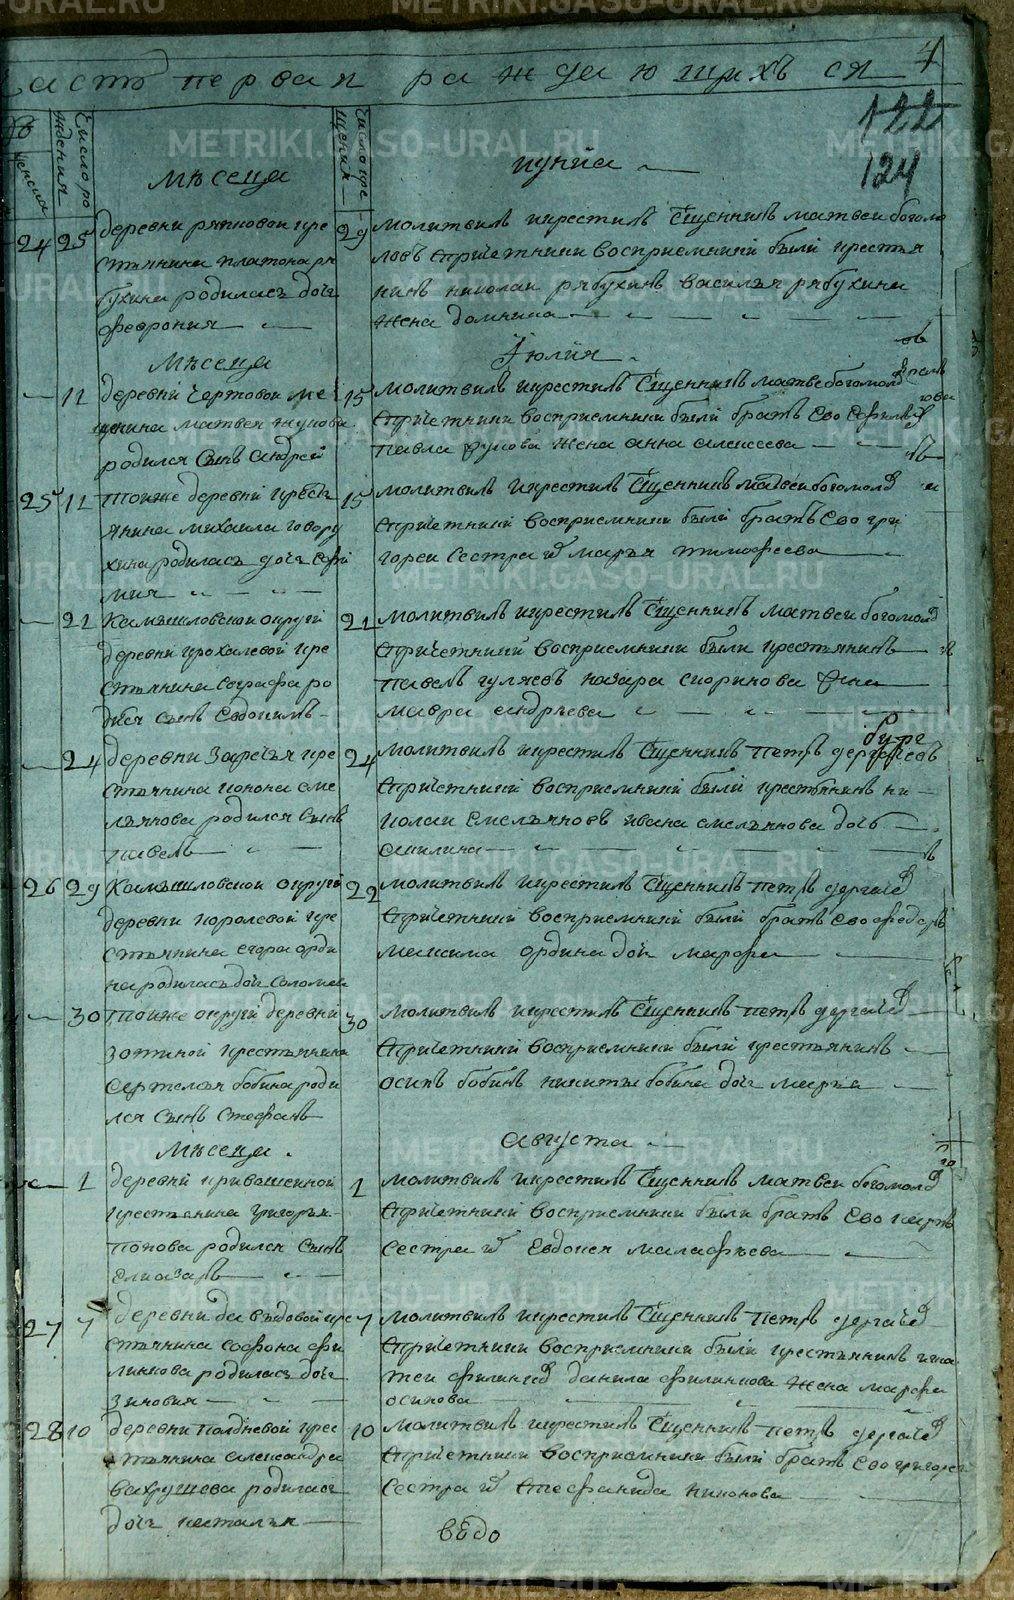 асть первая раждающихъ ся
122
124
Число ро
ждения
Число кре
щения
Мѣсеца
иуниа
24 25 деревни рявковой кре
стьянина платона ря
бухина родиласъ дочь
феврония
29 молитвилъ икрестилъ Сщенникъ матвеи богомо
ловъ Спричетники восприемники были крестья
нинъ николаи рябухинъ василья рябухина
жена домника
Мѣсеца
Іюлия
11 деревни Чертовой ме
щенина матвея жукова
родился Сынъ Андрей
15 молитвилъ икрестилъ Сщенникъ матвеи богомол
Спричетники восприемники были братъ Ево Ефимъ
павла жукова жена анна алексеева
25 11 тоиже деревни крестъ
янина михаила говору
хина родиласъ дочь Ефи
мия
15 молитвилъ икрестилъ Сщенникъ матвеи богомол
Спричетники восприемники были братъ Ево гри
гореи Сестра марья тимофеева
21 Камышловской округи
деревни прохалевой кре
стьянина Сынъ Евдокимъ
21 молитвилъ икрестилъ Сщенникъ матвеи богомол
Спричетники восприемники были крестьянинъ
павелъ гуляевъ назара скорикова
мавра андрѣева
24 деревни Заречья кре
стьянина конона еме
льянова родился Сынъ
павелъ
24 молитвилъ икрестилъ Сщенникъ петръ дергачевъ
Спричетники восприемники были крестьянинъ ни
колаи Емельяновъ ивана емельянова дочь
акилина
26 29 Камышловской округи
деревни королевой кре
стьянина егора орди
на родиласъ дочь Соломея
22 молитвилъ икрестилъ Сщенникъ петръ дергачев
Спричетники восприемники были братъ Ево федоръ
максима ордина дочь марфа
30 тоиже округи деревни
зотиной крестьянина
бобина роди
лся Сынъ Стефанъ
30 молитвилъ икрестилъ Сщенникъ петръ дергачев
Спричетники восприемники были крестьянинъ
осипъ бобинъ никиты бобина дочь марья
Мѣсеца
августа
1 деревни кривашеиной
крестьянина григорья
попова родился Сынъ
елиазаръ
1 молитвилъ икрестилъ Сщенникъ матвеи богомол
Спричетники восприемники были братъ Ево карпъ
Сестра Евдокея малафѣева
27 7 деревни давыдовой кре
стьянина софона фи
линкова родиласъ дочь
зиновия
7 молитвилъ икрестилъ Сщенникъ петръ дергачев
Спричетники восприемники были крестьянинъ игна
теи филинков данила филинкова жена марфа
осипова
28 10 деревни полдневой крес
тьянина александра
вахрушева родиласъ
дочь насталья
10 молитвилъ икрестилъ Сщенникъ петръ дергачев
Спричетники восприемники были братъ Ево григореи
Сестра Стефанида никонова
ведо
METRIKI.GASO-URAL.RU